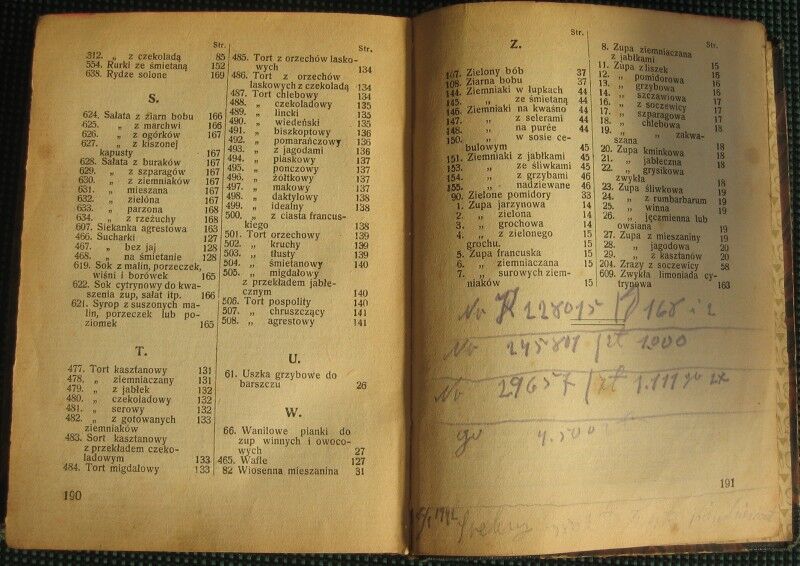 Str.
312. „ z czekoladą 85
554. Rurki ze śmietaną 152
638. Rydze solone 169
S.
624. Sałata z ziarn bobu 166
625. „ z marchwi 166
626. „ z ogórków 167
627. „ z kiszonej
kapusty 167
628. Sałata z buraków 167
629. „ z szparagów 167
630. „ z ziemniaków 167
631. „ mieszana 167
632. „ zielóna 167
633. „ parzona 168
634. „ z rzeżuchy 168
607. Siekanka agrestowa 163
466. Sucharki 127
467. „ bez jaj 128
468. „ na śmietanie 128
619. Sok z malin, porzeczek,
wiśni i borówek 165
622. Sok cytrynowy do kwa-
szenia zup, sałat itp. 166
621. Syrop z suszonych ma-
lin, porzeczek lub po-
ziomek 165
T.
477. Tort kasztanowy 131
478. „ ziemniaczany 131
479. „ z jabłek 132
480. „ czekoladowy 132
481. „ serowy 132
482. „ z gotowanych
ziemniaków 132
483. Sort kasztanowy
z przekładem czeko-
ladowym 133
484. Tort migdałowy 133
190
Str.
485. Tort z orzechów lasko-
wych 134
486. Tort z orzechów
laskowych z czekoladą 134
487. Tort chlebowy 134
488. „ czekoladowy 135
489. „ lincki 135
490. „ wiedeński 135
491. „ biszkoptowy 136
492. „ pomarańczowy 136
493. „ z jagodami 136
494. „ piaskowy 137
495. „ ponczowy 137
496. „ żółtkowy 137
497. „ makowy 137
498. „ daktylowy 138
499. „ idealny 138
500. „ z ciasta francus-
kiego 138
501. Tort orzechowy 139
502. „ kruchy 139
503. „ tłusty 139
504. „ śmietanowy 140
505. „ migdałowy
z przekładem jabłe-
cznym 140
506. Tort pospolity 140
507. „ chruszczący 141
508. „ agrestowy 141
U.
61. Uszka grzybowe do
barszczu 26
W.
66. Waniliowe pianki do
zup winnych i owoco-
wych 27
465. Wafle 127
82 Wiosenna mieszanina 31
Z.
Str.
107. Zielony bób 37
108. Ziarna bobu 37
144. Ziemniaki w łupkach 44
145. „ ze śmietaną 44
146. Ziemniaki na kwaśno 44
147. „ z selerami 44
148. „ na purée 44
150. „ w sosie ce-
bulowym 45
151. Ziemniaki z jabłkami 45
153. „ ze śliwkami 45
154. „ z grzybami 46
155. „ nadziewane 46
90. Zielone pomidory 33
1. Zupa jarzynowa 14
2. „ zielona 14
3. „ grochowa 14
4. „ z zielonego
grochu. 15
5. Zupa francuska 15
6. „ ziemniaczana 15
7. „ surowych ziem-
niaków 15
Str.
8. Zupa ziemniaczana
z jabłkami 15
11. Zupa z liszek 15
12. „ pomidorowa 16
13. „ grzybowa 16
14. „ szczawiowa 17
16. „ z soczewicy 17
17. „ szparagowa 17
18. „ chlebowa 18
19. „ „ zakwa-
szana 18
20. Zupa kminkowa 18
21. „ jabłeczna 18
22. „ grysikowa
zwykła 18
23. Zupa śliwkowa 19
24. „ z rumbarbarum 19
25. „ winna 19
26. „ jęczmienna lub
owsiana 19
27. Zupa z mieszaniny 19
28. „ jagodowa 20
29. „ z kasztanów 20
204. Zrazy z soczewicy 58
609. Zwykła limoniada cy-
trynowa 163
No 228015 168 i 2
No 245801 / zł 1000
No 29657 / zł 1.111
191